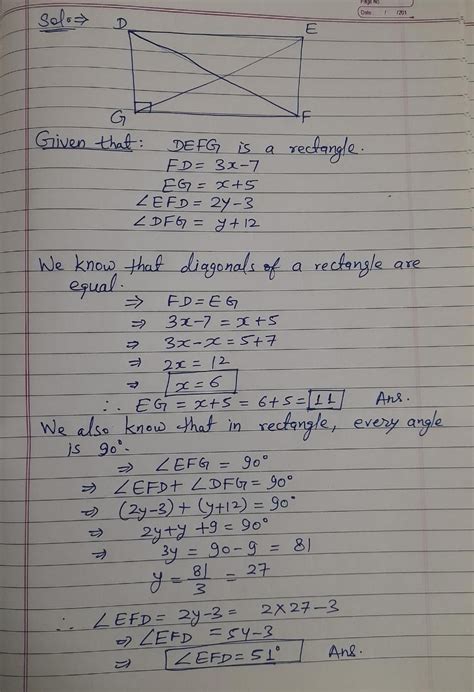 Page No.
Date / /201
Sol⇒
D E
G F
Given that: DEFG is a rectangle.
FD = 3x-7
EG = x+5
∠EFD = 2y-3
∠DFG = y+12
We know that diagonals of a rectangle are
equal.
⇒ FD = EG
⇒ 3x-7 = x+5
⇒ 3x-x = 5+7
⇒ 2x = 12
⇒ x = 6
∴ EG = x+5 = 6+5 = 11 Ans.
We also know that in rectangle, every angle
is 90°.
⇒ ∠EFG = 90°
⇒ ∠EFD + ∠DFG = 90°
⇒ (2y-3) + (y+12) = 90°
⇒ 2y+y+9 = 90°
⇒ 3y = 90-9 = 81
y = 81/3 = 27
∴ ∠EFD = 2y-3 = 2×27-3
⇒ ∠EFD = 54-3
⇒ ∠EFD = 51° Ans.